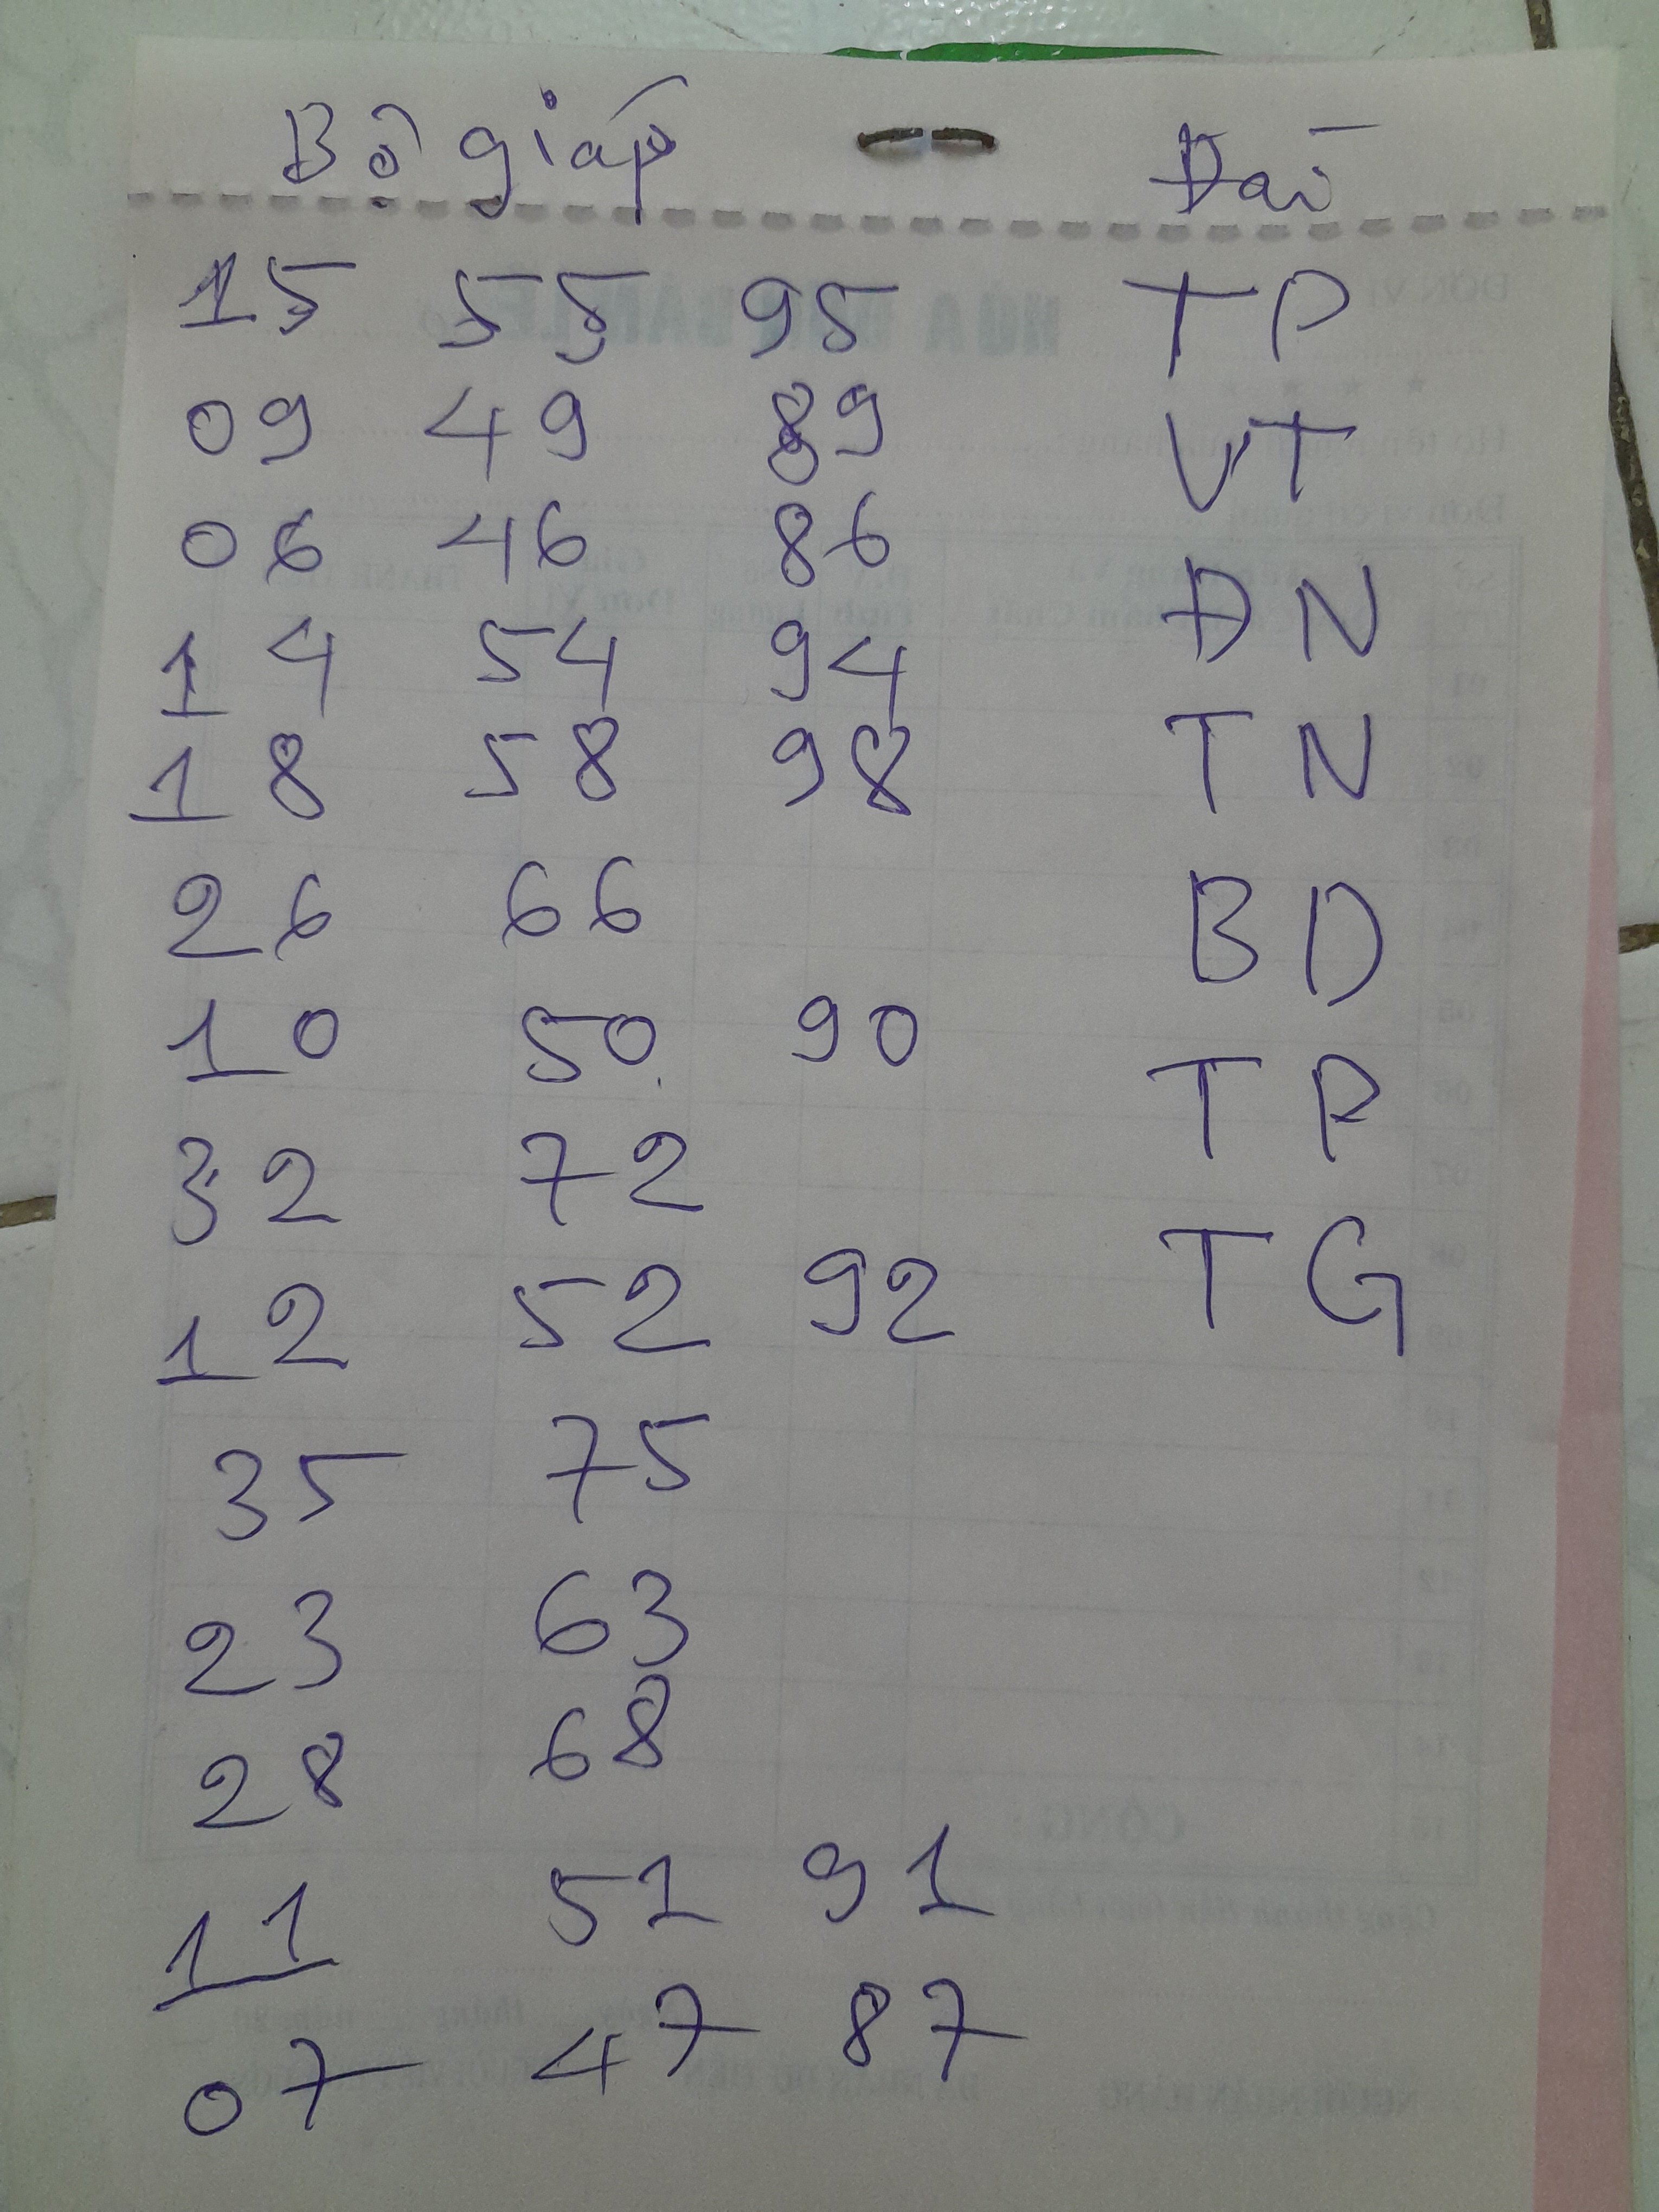 Bộ giáp Đài
15 55 95 TP
09 49 89 VT
06 46 86 ĐN
14 54 94 TN
18 58 98
26 66 BD
10 50 90 TP
32 72
12 52 92 TG
35 75
23 63
28 68
11 51 91
07 47 87